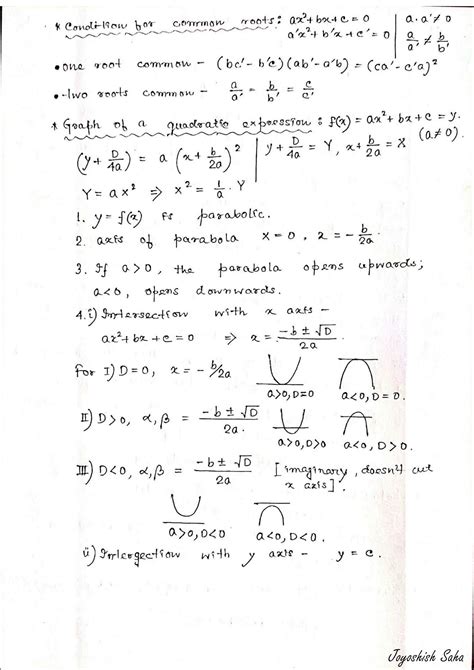 * Condition for common roots: ax²+bx+c = 0 | a·a' ≠ 0
a'x²+b'x+c' = 0 | a/a' ≠ b/b'
• one root common – (bc'-b'c)(ab'-a'b) = (ca'-c'a)²
• two roots common – a/a' = b/b' = c/c'
* Graph of a quadratic expression: f(x) = ax²+bx+c = y. (a≠0)
(y + D/4a) = a (x + b/2a)² | y + D/4a = Y, x + b/2a = X
Y = ax² ⇒ x² = 1/a · Y
1. y = f(x) is parabolic.
2. axis of parabola X = 0, x = -b/2a.
3. If a>0, the parabola opens upwards;
a<0, opens downwards.
4. i) Intersection with x axis –
ax²+bx+c = 0 ⇒ x = (-b ± √D)/2a
For I) D=0, x = -b/2a
a>0, D=0 a<0, D=0.
II) D>0, α,β = (-b ± √D)/2a.
a>0, D>0 a<0, D>0.
III) D<0, α,β = (-b ± √D)/2a [imaginary, doesn't cut
x axis].
a>0, D<0 a<0, D<0.
ii) Intersection with y axis – y = c.
Joyoshish Saha